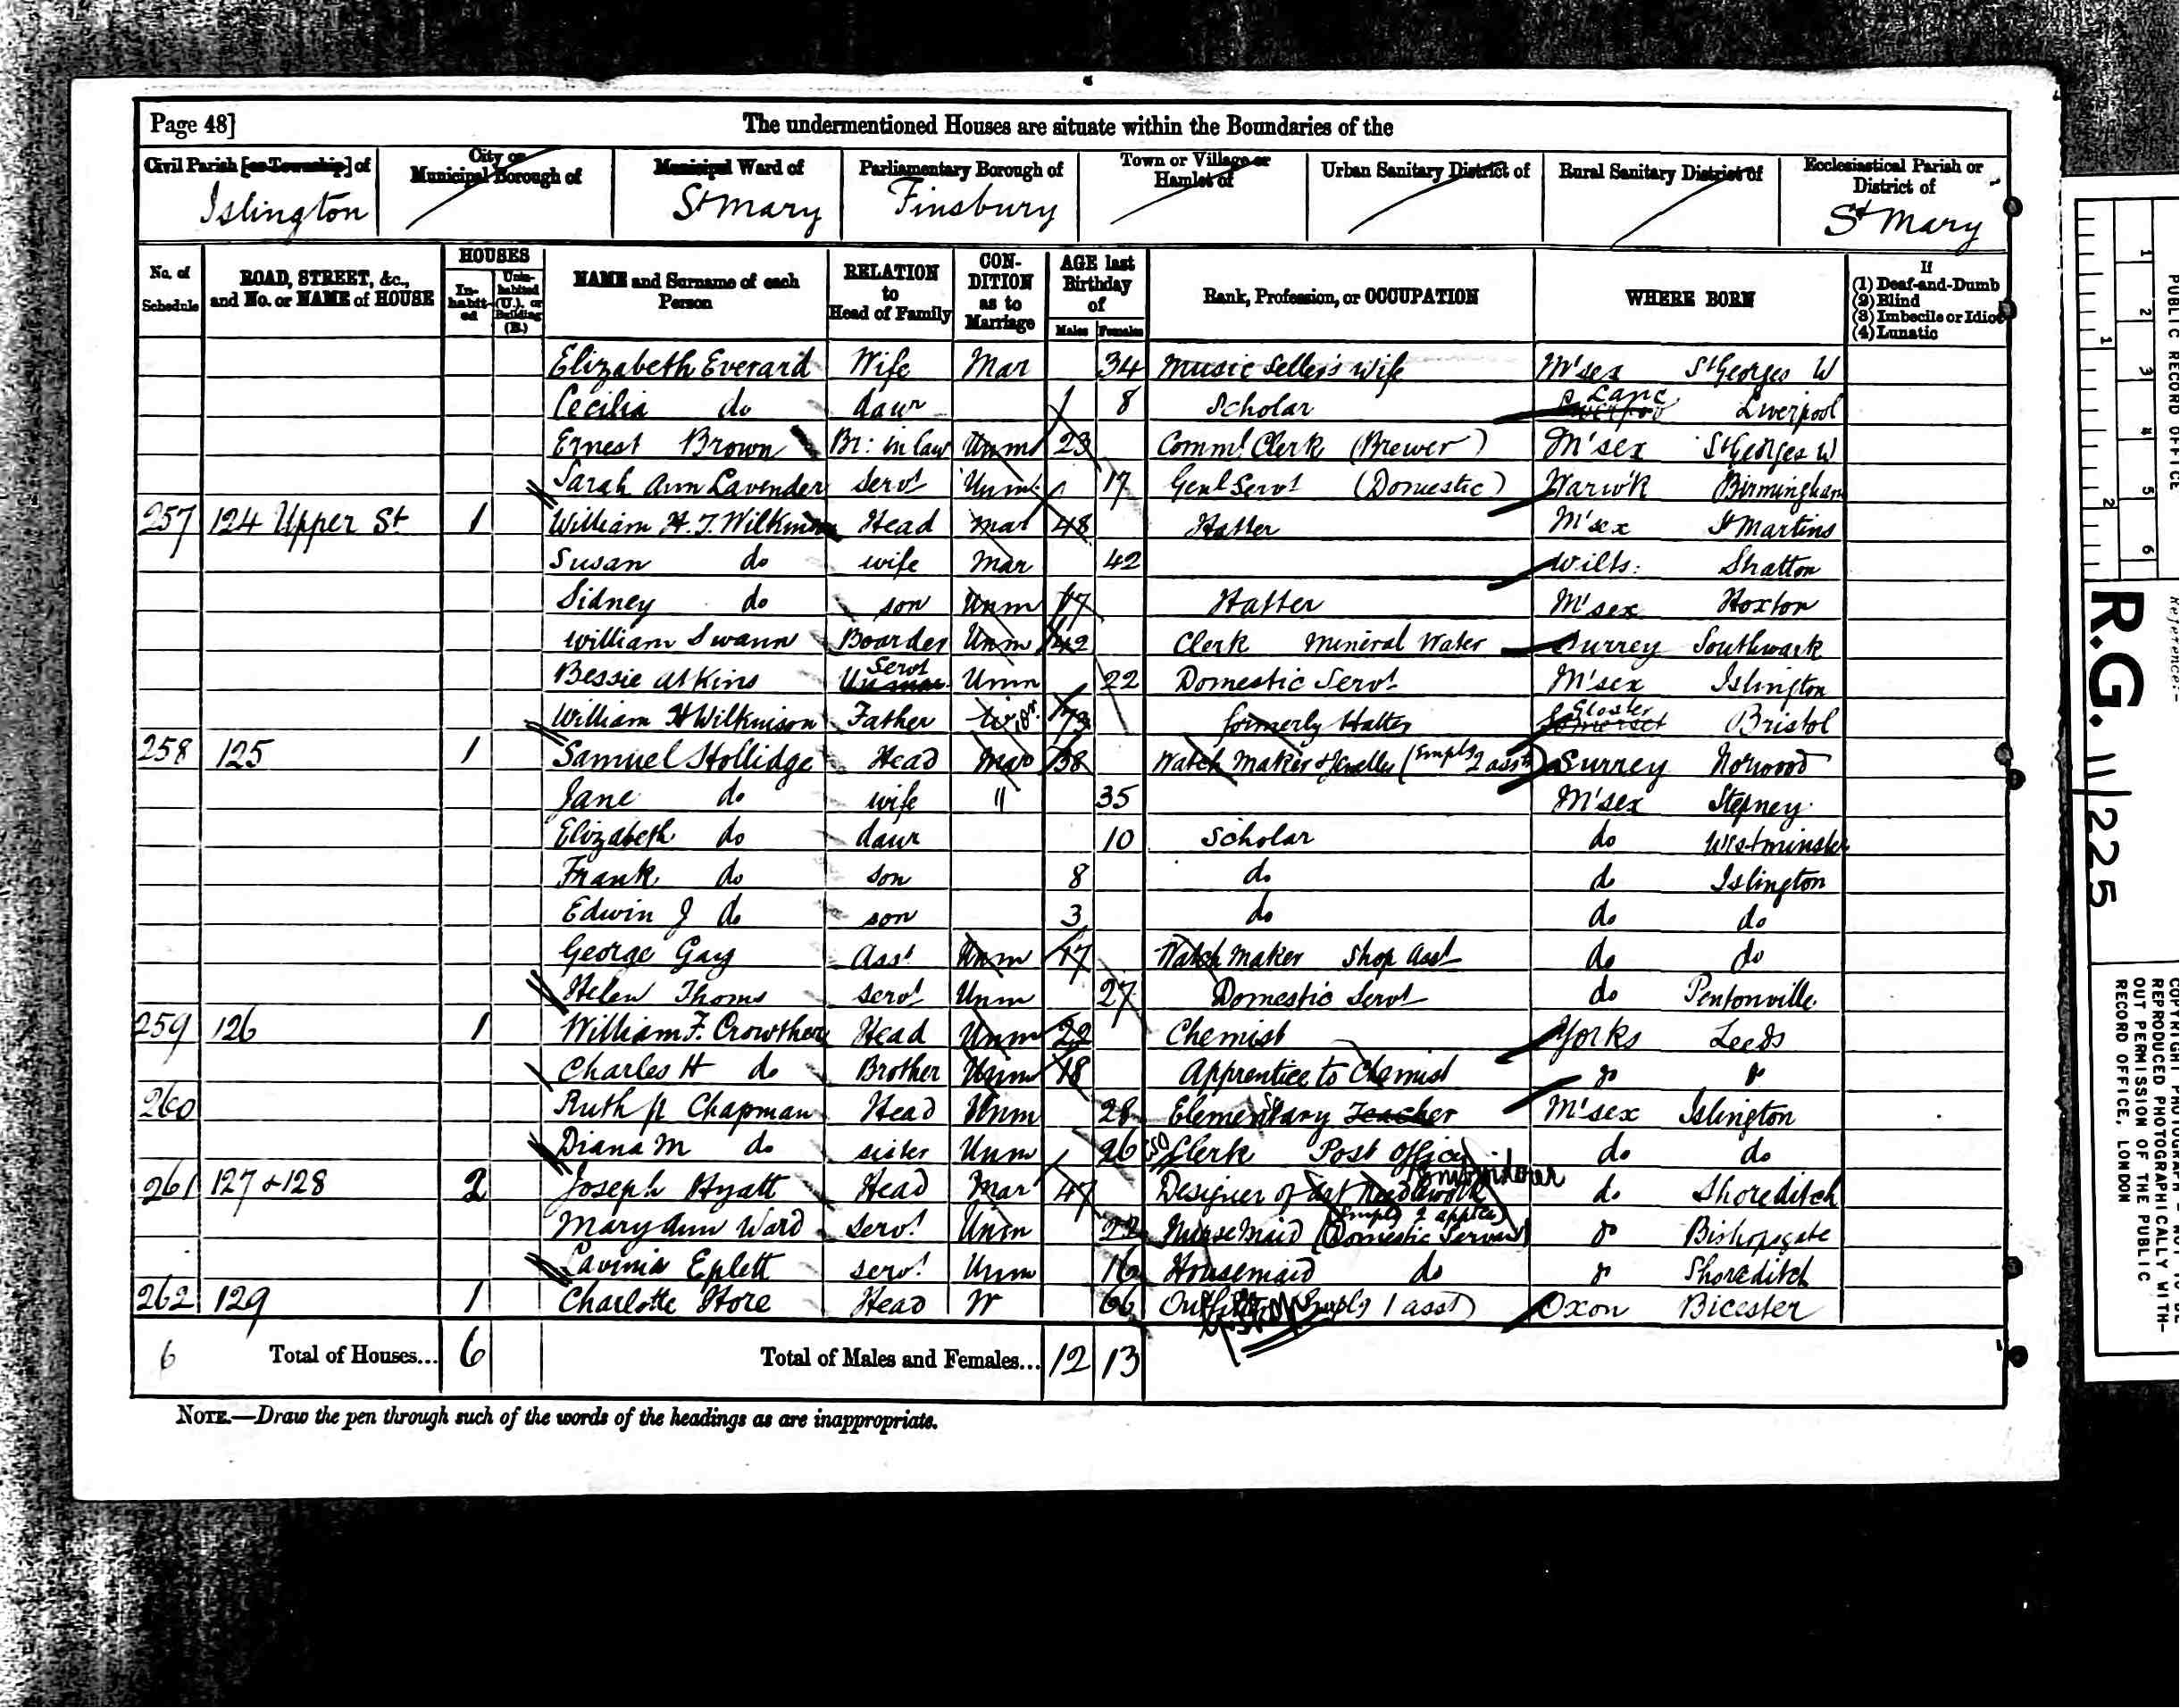 Page 48]
The undermentioned Houses are situate within the Boundaries of the
Civil Parish [or Township] of
City or Municipal Borough of
Municipal Ward of
Parliamentary Borough of
Town or Village or Hamlet of
Urban Sanitary District of
Rural Sanitary District of
Ecclesiastical Parish or District of
Islington St Mary Finsbury St Mary
No. of Schedule
ROAD, STREET, &c., and No. or NAME of HOUSE
HOUSES
In-habit-ed
Unin-habited (U.), or Building (B.)
NAME and Surname of each Person
RELATION to Head of Family
CON-DITION as to Marriage
AGE last Birthday of
Males Females
Rank, Profession, or OCCUPATION
WHERE BORN
If
(1) Deaf-and-Dumb
(2) Blind
(3) Imbecile or Idiot
(4) Lunatic
Elizabeth Everard Wife Mar 34 Music Seller's Wife M'sex St Georges W
Cecilia do daur 8 Scholar Lanc Liverpool
Ernest Brown Br: in law Unm 23 Comml Clerk (Brewer) M'sex St Georges W
Sarah Ann Lavender servt Unm 17 Genl Servt (Domestic) Warwk Birmingham
257 124 Upper St 1 William H. T. Wilkinson Head Mar 48 Hatter M'sex St Martins
Susan do wife Mar 42 Wilts: Stratton
Sidney do son Unm 17 Hatter M'sex Hoxton
William Swann Boarder Unm 42 Clerk Mineral Water Surrey Southwark
Bessie Atkins Servt Unm 22 Domestic Servt M'sex Islington
William H Wilkinson Father Wior 73 formerly Hatter Somerset Gloster Bristol
258 125 1 Samuel Hollidge Head Mar 38 Watch Maker & Jeweller (Empls 2 assts) Surrey Norwood
Jane do wife " 35 M'sex Stepney
Elizabeth do daur 10 Scholar do Westminster
Frank do son 8 do do Islington
Edwin J do son 3 do do do
George Gay Asst Unm 17 Watch Maker Shop Asst do do
Helen Thoms servt Unm 27 Domestic Servt do Pentonville
259 126 1 William F. Crowther Head Unm 22 Chemist Yorks Leeds
Charles H do Brother Unm 18 Apprentice to Chemist do do
260 Ruth A Chapman Head Unm 28 Elementary Teacher M'sex Islington
Diana M do sister Unm 26 Clerk Post Office do do
261 127 & 128 2 Joseph Hyatt Head Mar 47 Designer of Art Needlework Embroiderer (Empls 2 apples) do Shoreditch
Mary Ann Ward servt Unm 22 Nurse Maid (Domestic Servant) do Bishopsgate
Lavinia Eplett servt Unm 16 Housemaid do do Shoreditch
262 129 1 Charlotte Hore Head W 66 Outfitter (Emplg 1 asst) Oxon Bicester
6 Total of Houses... 6 Total of Males and Females... 12 13
NOTE.—Draw the pen through such of the words of the headings as are inappropriate.
PUBLIC RECORD OFFICE
1 2 3 4 5 6
1 2
Reference:-
R.G. 11/225
COPYRIGHT PHOTOGRAPH - NOT TO BE
REPRODUCED PHOTOGRAPHICALLY WITH-
OUT PERMISSION OF THE PUBLIC
RECORD OFFICE, LONDON